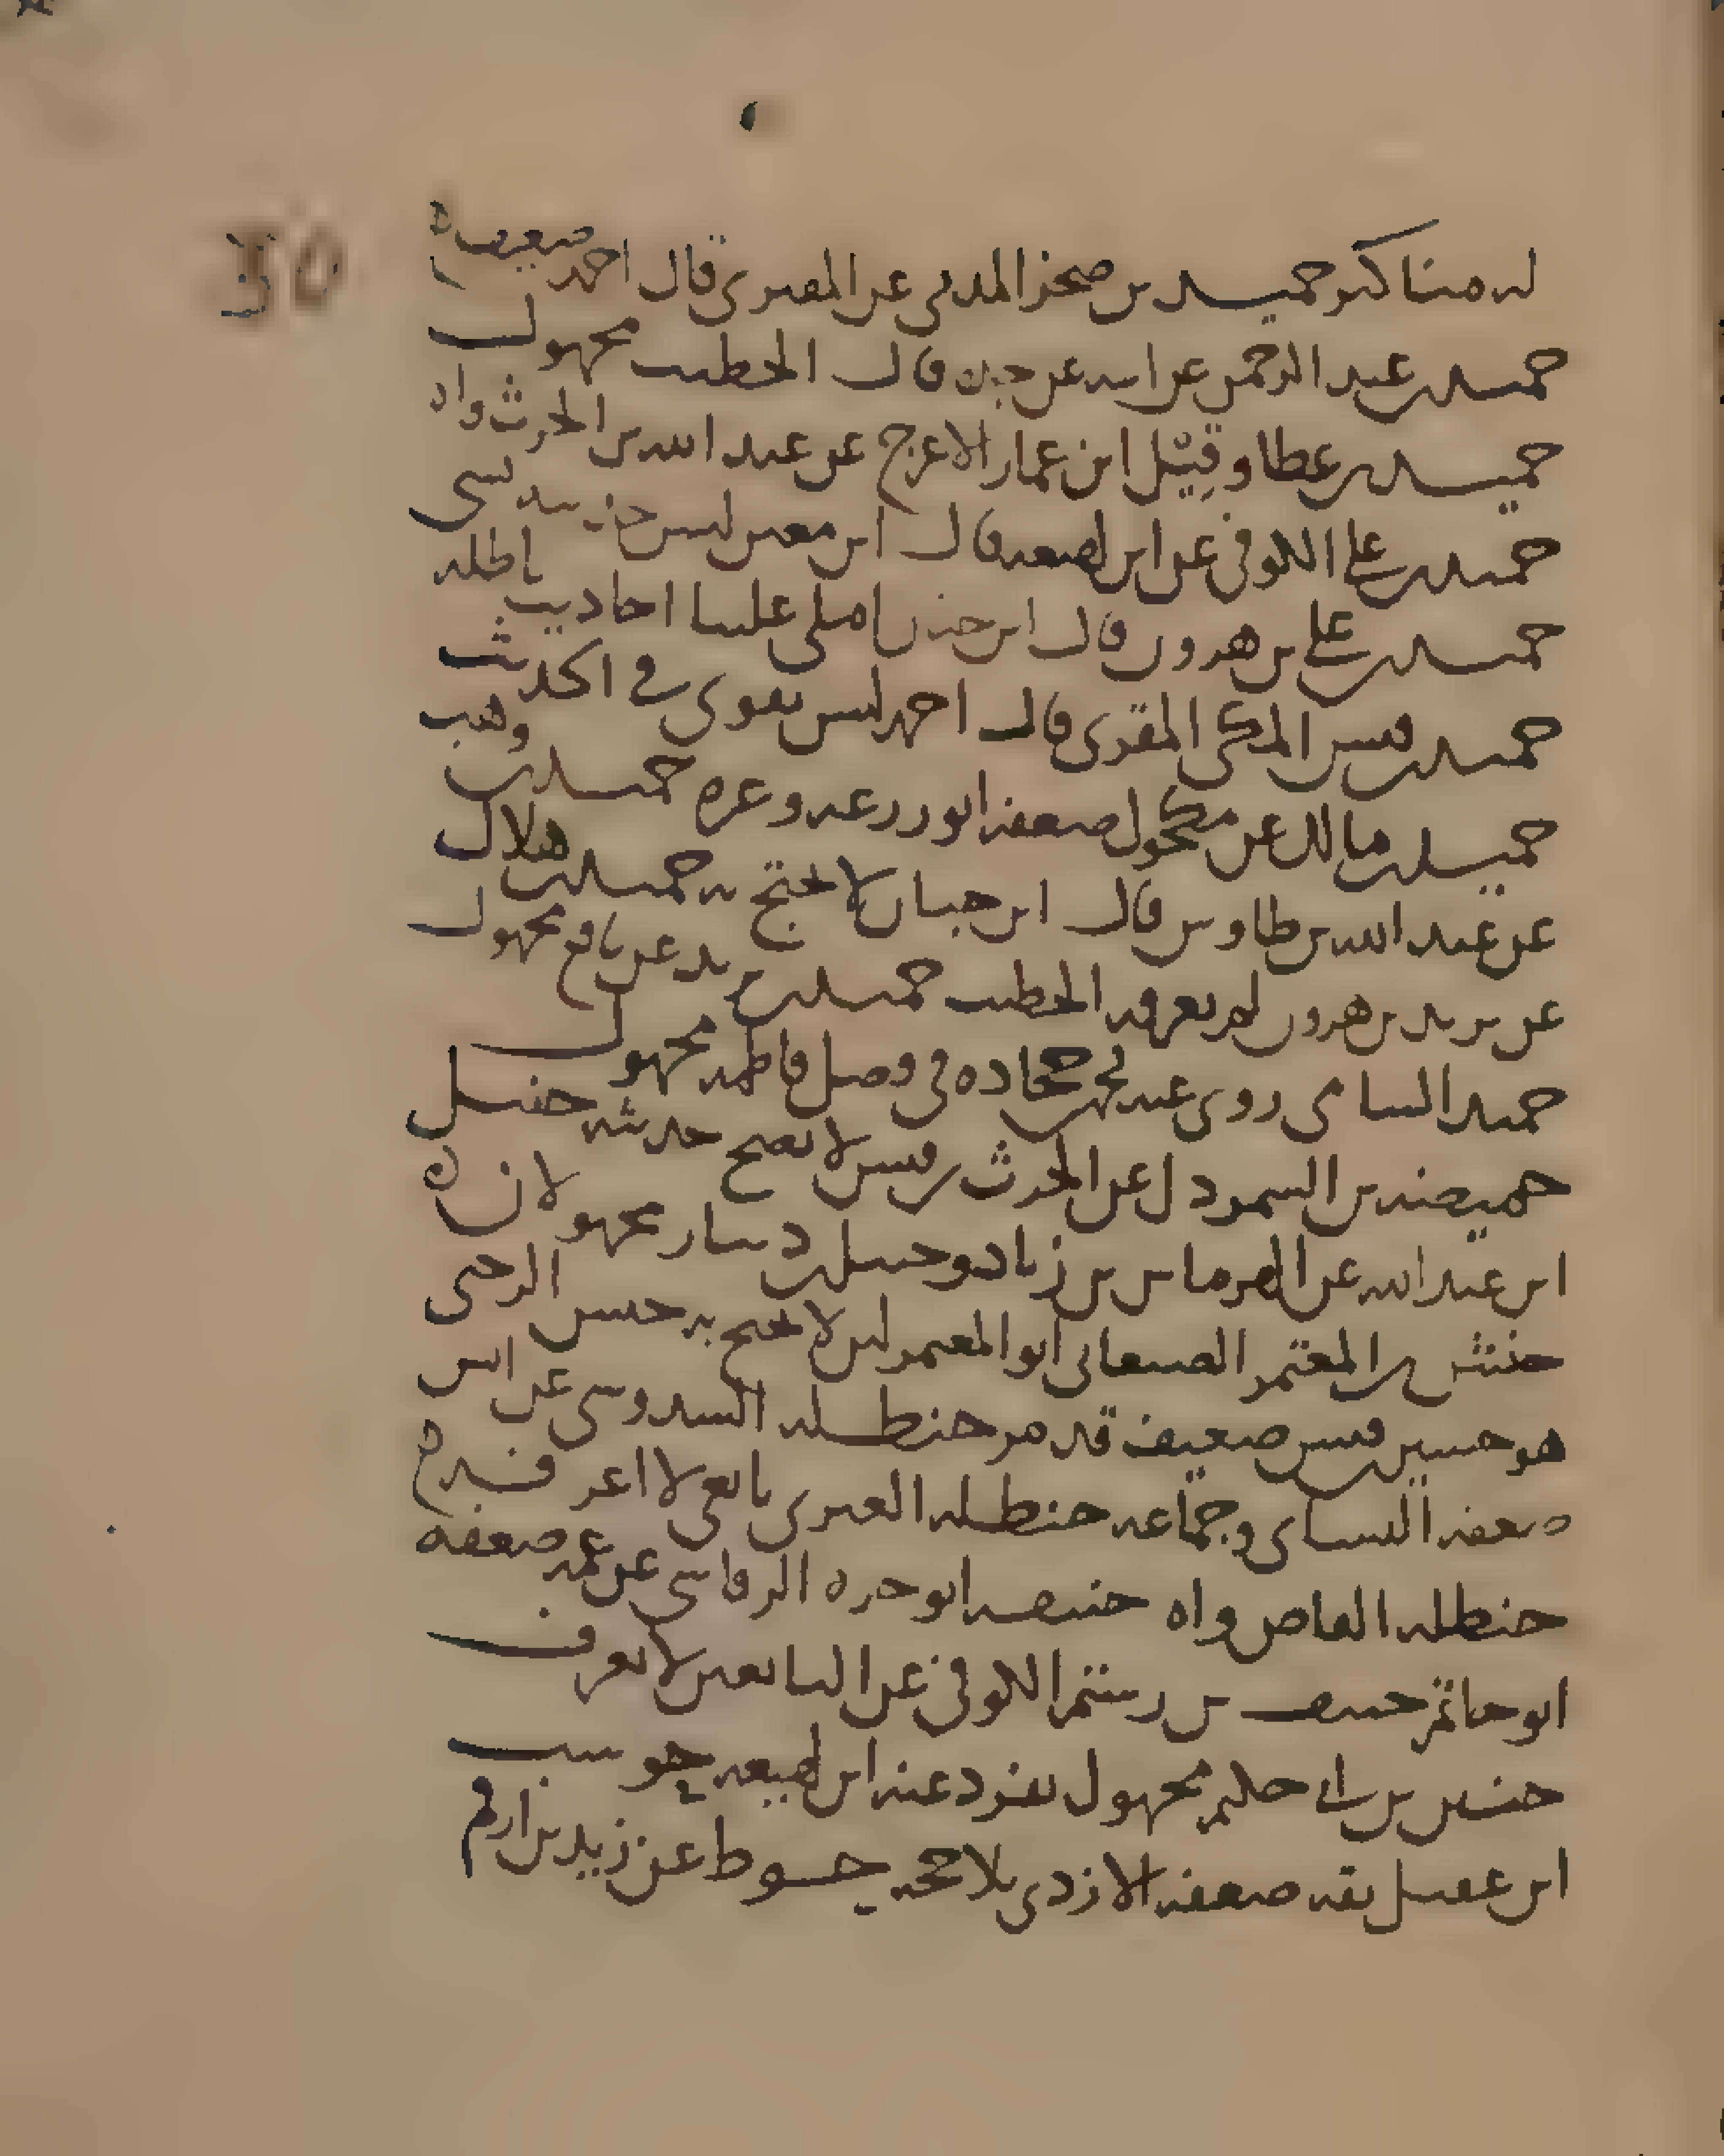 له مناكير حميد بن صخر المدني عن المقبري قال احمد ضعيف
حميد بن عبد الرحمن عن ابيه عن جده قال الخطيب مجهول
حميد بن عطا وقيل ابن عمار الاعرج عن عبد الله بن الحرث واه
حميد بن علي الكوفي عن ابن لهيعه قال ابن معين ليس حديثه بشي
حميد بن علي بن هرون قال ابن حبان املى علينا احاديث باطله
حميد بن قيس المكي المقرى قال احمد ليس بقوي في الحديث
حميد بن مالك عن مكحول ضعفه ابو زرعه وغيره حميد بن وهب
عن عبد الله بن طاوس قال ابن حبان لا يحتج به حميد بن هلال
عن يزيد بن هرون لم يعرفه الخطيب حميد بن يزيد عن نافع مجهول
حميد الشامي روى عنه محمد بن جحاده في وصل فاطمه مجهول
حميضه بن الشمردل عن الحرث بن قيس لا يصح حديثه حنبل
ابن عبد الله عن الهرماس بن زياد وحنبل بن دينار مجهولان
حنش بن المعتمر الصنعاني ابو المعتمر لين لا يحتج به حنش الرحبي
هو حسين بن قيس ضعيف قد مر حنظله السدوسي عن انس
ضعفه النسائ وجماعه حنظله العبرى تابعي لا اعرفه
حنظله القاص واه حنيفه ابو حره الرقاشي عن عمه ضعفه
ابو حاتم حنيف بن رستم الكوفي عن التابعين لا يعرف
حنين بن ابي حكيم مجهول تفرد عنه ابن لهيعه حوشب
ابن عقيل ثقه ضعفه الازدي بلا حجه حوط عن زيد بن ارقم